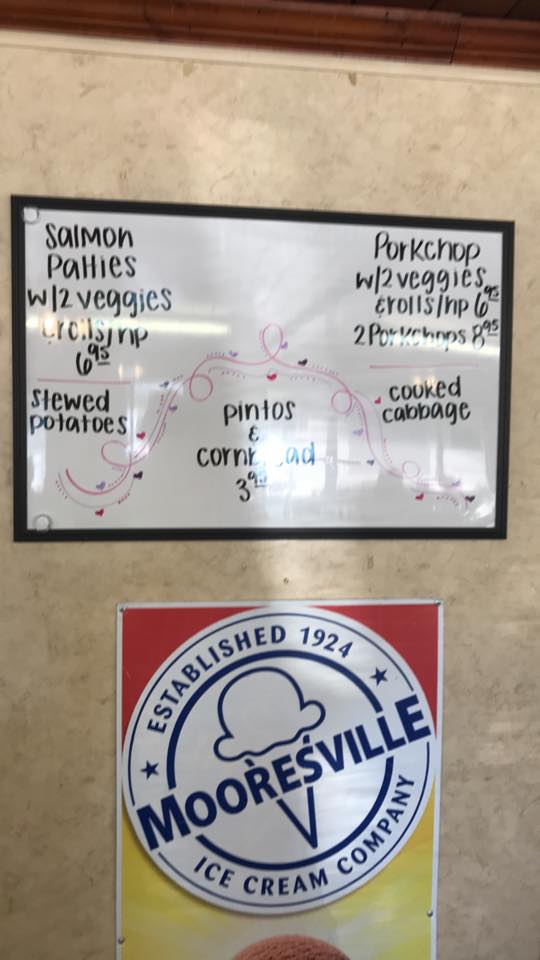 Salmon
Patties
w/2 veggies
& rolls/hp
6.95
stewed
potatoes
pintos
&
cornbread
3.95
Porkchop
w/2 veggies
& rolls/hp 6.95
2 Porkchops 8.95
cooked
cabbage
ESTABLISHED 1924
MOORESVILLE
ICE CREAM COMPANY